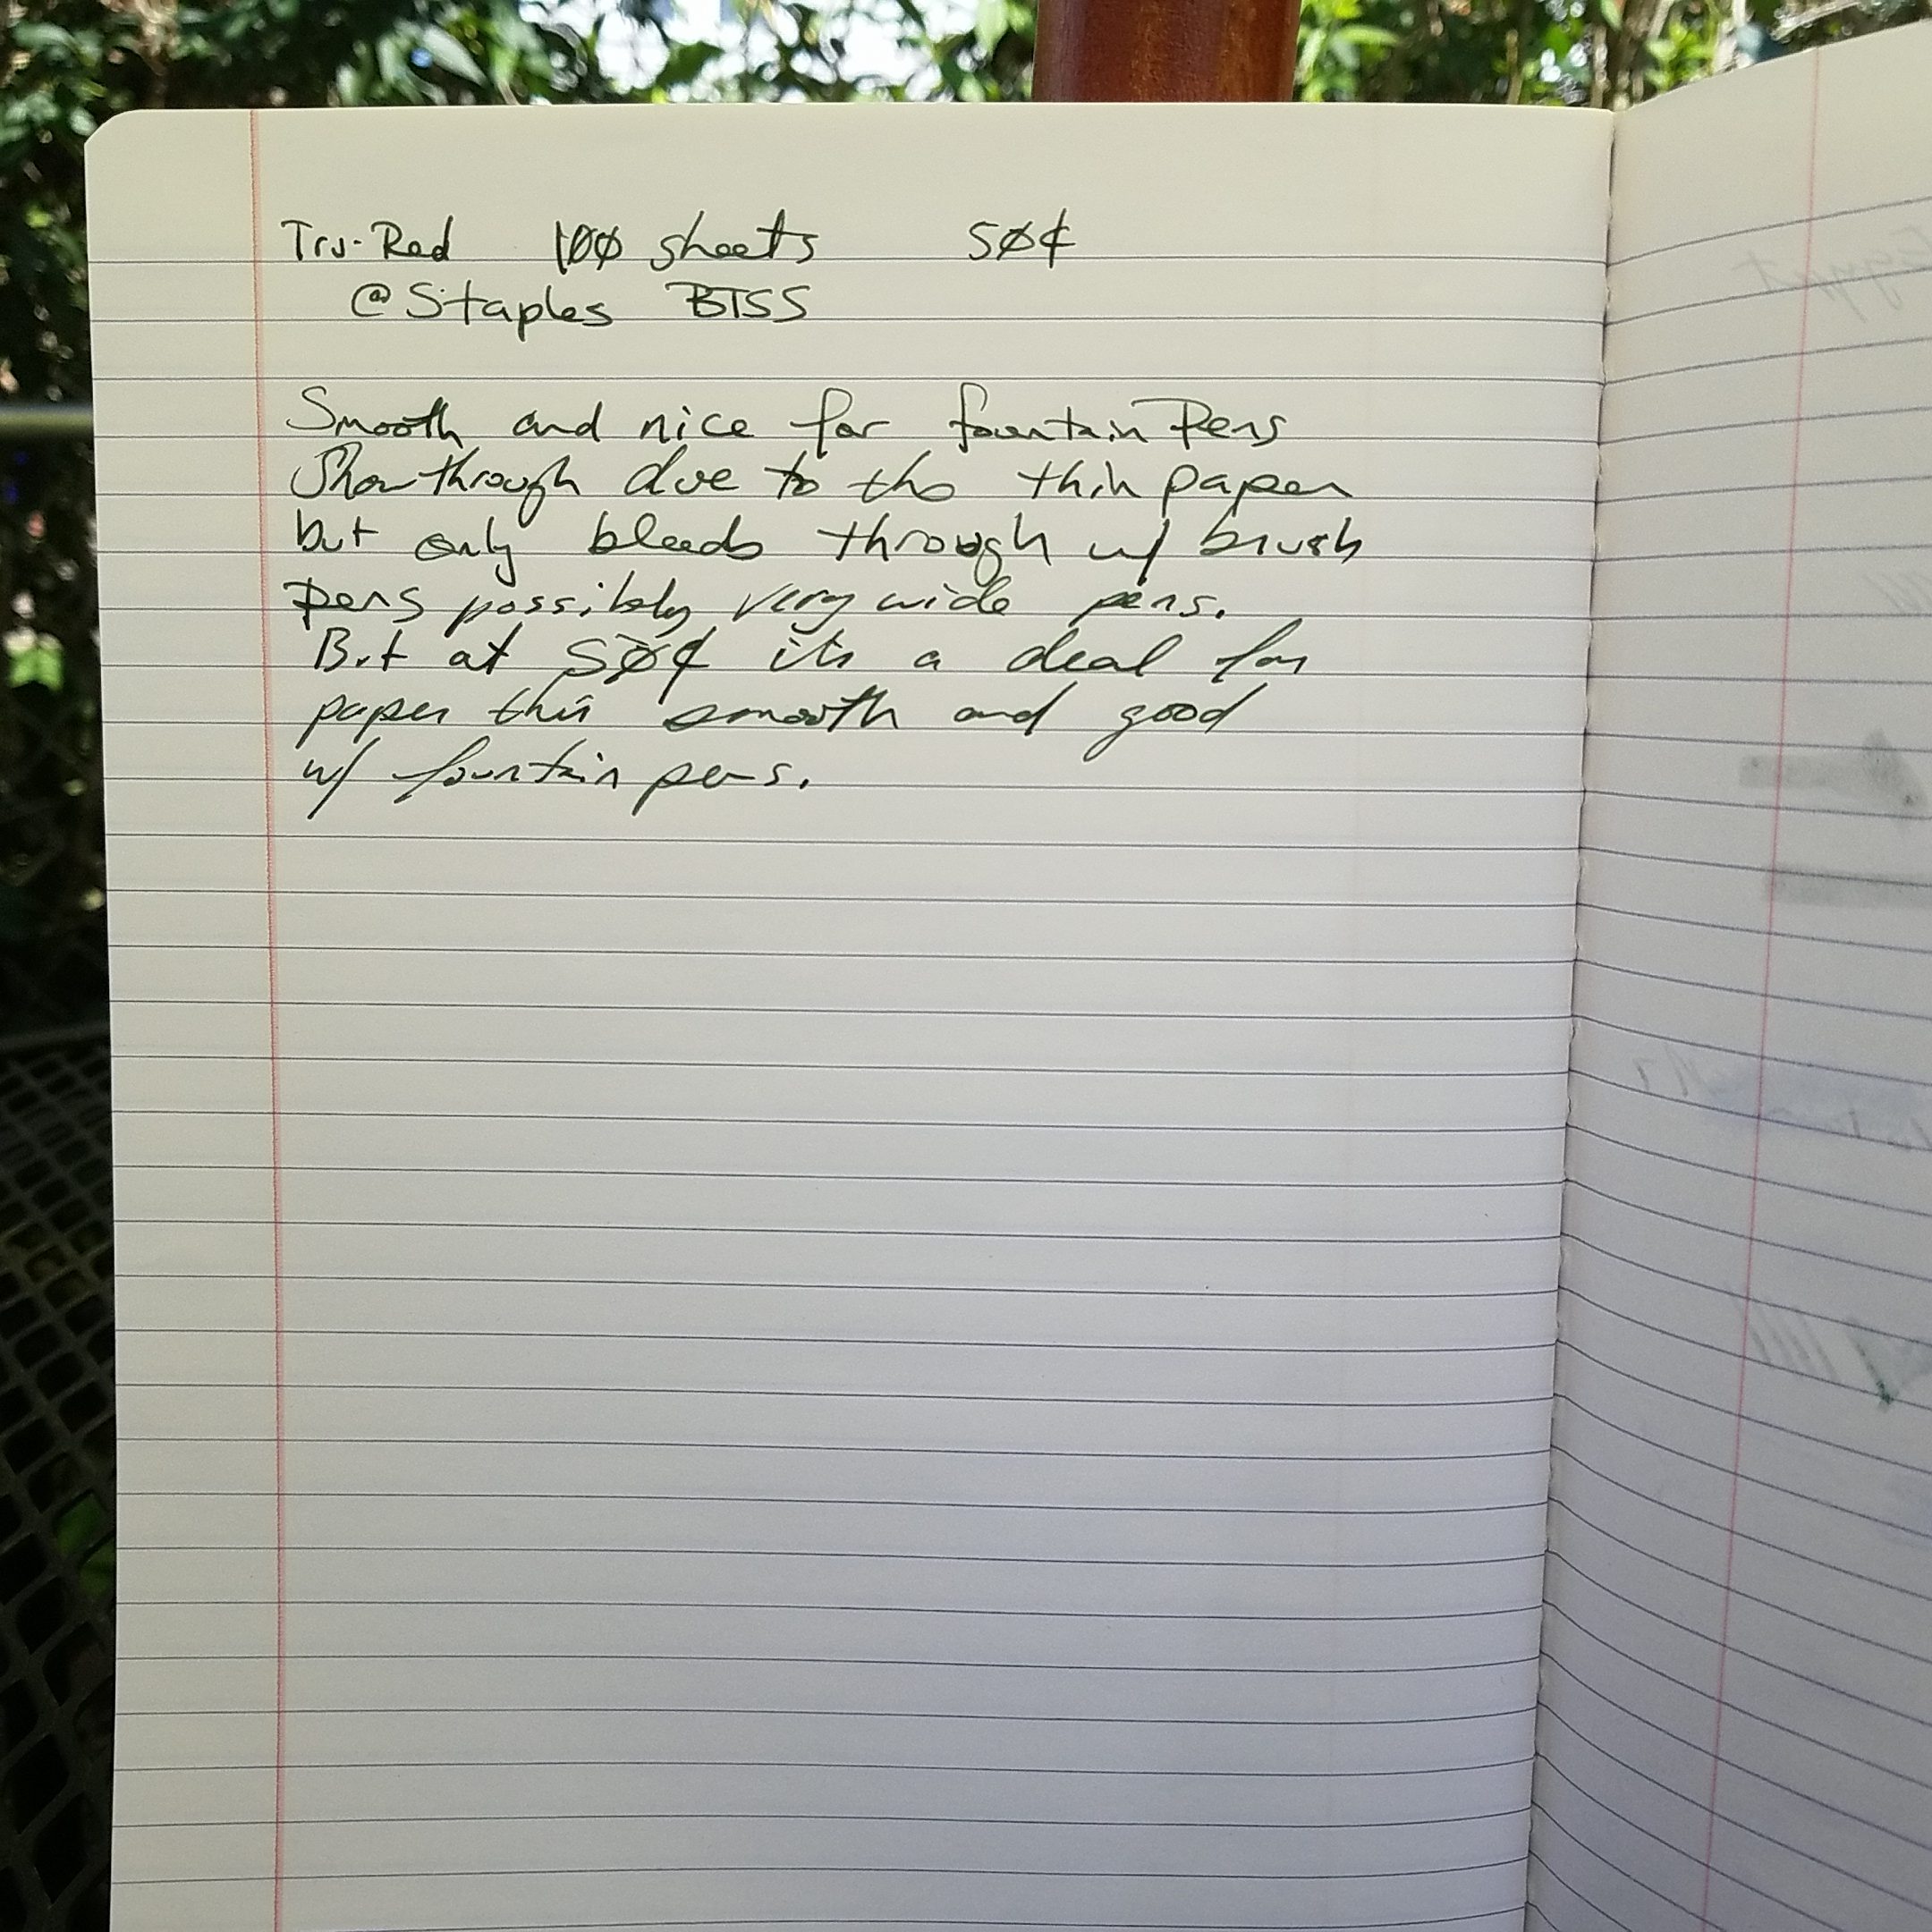 Tru-Red 100 sheets 50¢
@Staples BTSS
Smooth and nice for fountain Pens
Show through due to the thin paper
but only bleeds through w/ brush
pens possibly very wide pens.
But at 50¢ its a deal for
paper this smooth and good
w/ fountain pens.